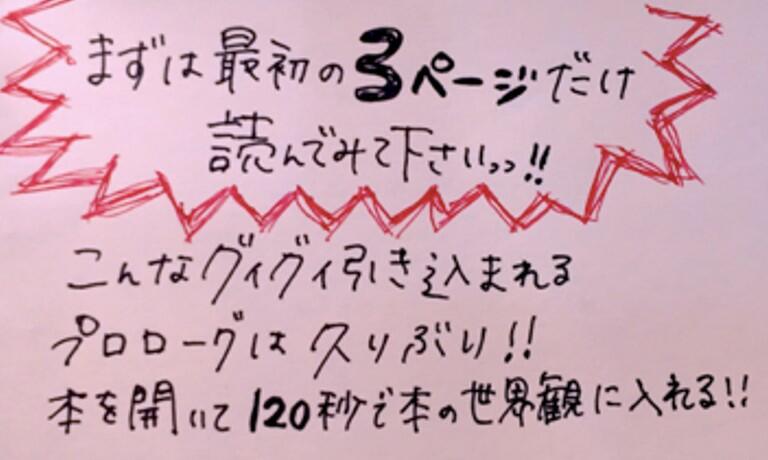 まずは最初の3ページだけ
読んでみて下さいっっ!!
こんなグイグイ引き込まれる
プロローグは久りぶり!!
本を開いて120秒で本の世界観に入れる!!